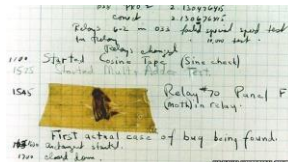 PRO 2 2.130476415
correct 2.130676415
Relays 6-2 in 033 failed special speed test
in relay " 10.000 test.
Relays changed
1100 Started Cosine Tape (Sine check)
1525 Started Mult+Adder Test.
1545 Relay #70 Panel F
(moth) in relay.
First actual case of bug being found.
antangent started.
1700 closed down.